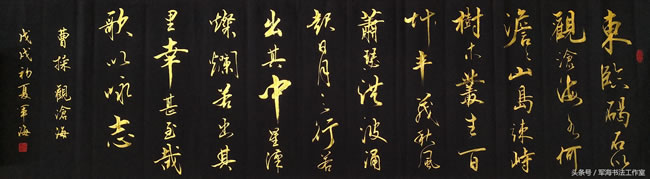 東臨碣石以
觀滄海水何
澹々山島竦峙
樹木叢生百
艸丰茂秋風
蕭瑟洪波涌
起日月之行若
出其中星漢
燦爛若出其
里幸甚至哉
歌以咏志
曹操觀滄海
戊戌初夏軍海
头条号／军海书法工作室